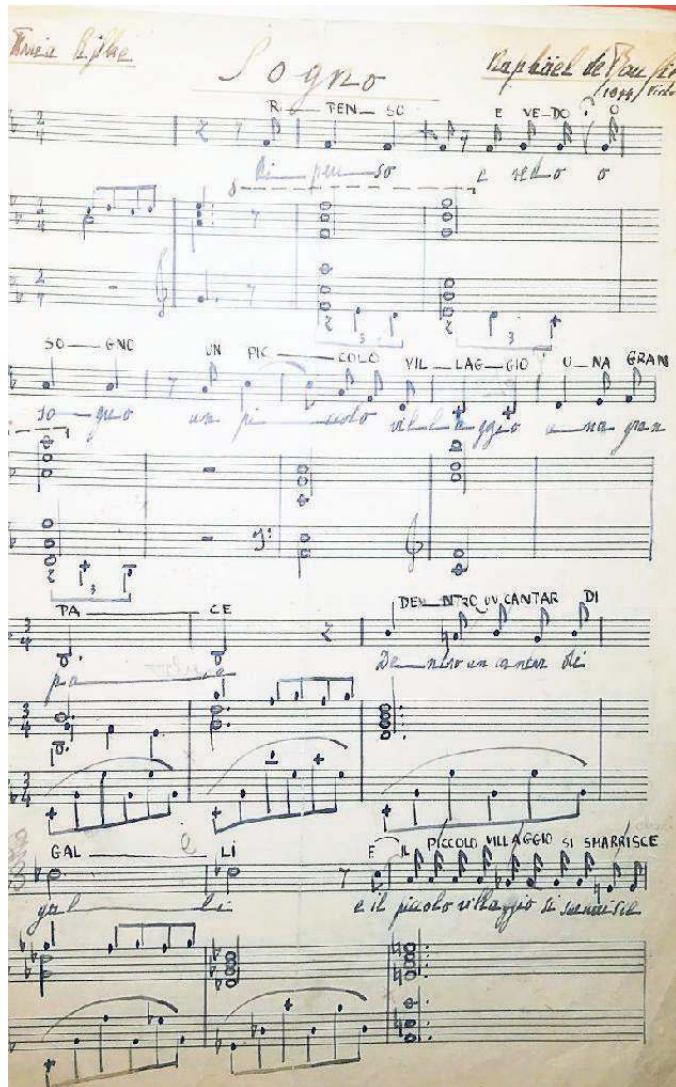 Sogno
Raphäel de
RI - PEN - SO E VE - DO O
Ri - pen - so e vedo o
SO - GNO UN PIC - COLO VIL - LAG - GIO U - NA GRAN
so - gno un pi - ccolo villaggio u - na gran
PA CE DEN - TRO UN CANTAR DI
pa ce De - ntro un cantar dei
GAL LI E IL PICCOLO VILLAGGIO SI SMARRISCE
gal li e il piccolo villaggio si smarrisce